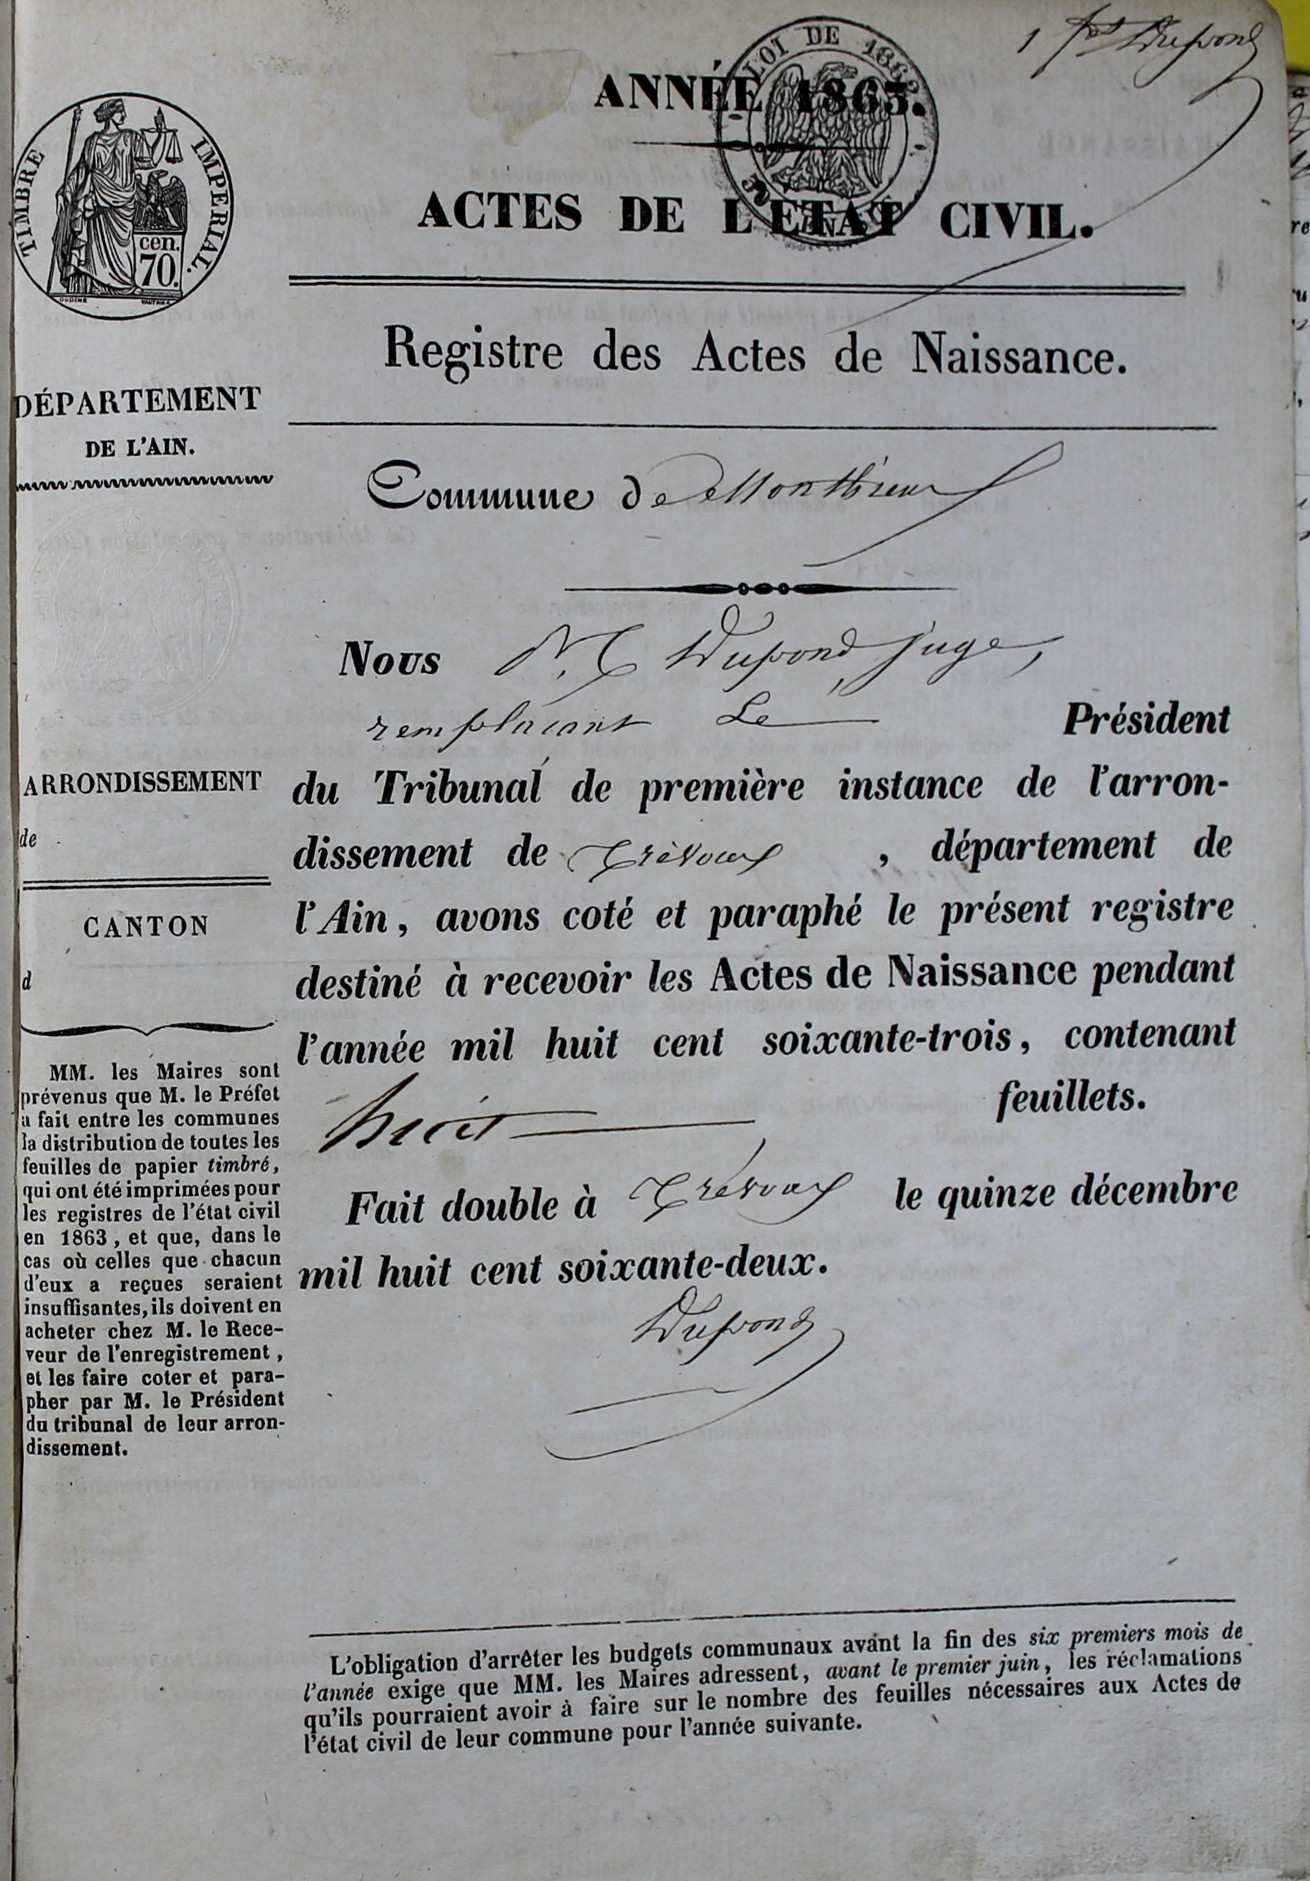 1 er Dupond
LOI DE 1862
ANNÉE 1863.
TIMBRE IMPERIAL.
cen.
70.
ACTES DE L'ETAT CIVIL.
Registre des Actes de Naissance.
DÉPARTEMENT
DE L'AIN.
Commune de Monthieux
Nous Dupond juge,
remplaçant Le Président
ARRONDISSEMENT
de
du Tribunal de première instance de l'arron-
dissement de Trévoux, département de
l'Ain, avons coté et paraphé le présent registre
destiné à recevoir les Actes de Naissance pendant
l'année mil huit cent soixante-trois, contenant
huit feuillets.
Fait double à Trévoux le quinze décembre
mil huit cent soixante-deux.
Dupond
CANTON
d
MM. les Maires sont
prévenus que M. le Préfet
a fait entre les communes
la distribution de toutes les
feuilles de papier timbré,
qui ont été imprimées pour
les registres de l'état civil
en 1863, et que, dans le
cas où celles que chacun
d'eux a reçues seraient
insuffisantes, ils doivent en
acheter chez M. le Rece-
veur de l'enregistrement,
et les faire coter et para-
pher par M. le Président
du tribunal de leur arron-
dissement.
L'obligation d'arrêter les budgets communaux avant la fin des six premiers mois de
l'année exige que MM. les Maires adressent, avant le premier juin, les réclamations
qu'ils pourraient avoir à faire sur le nombre des feuilles nécessaires aux Actes de
l'état civil de leur commune pour l'année suivante.